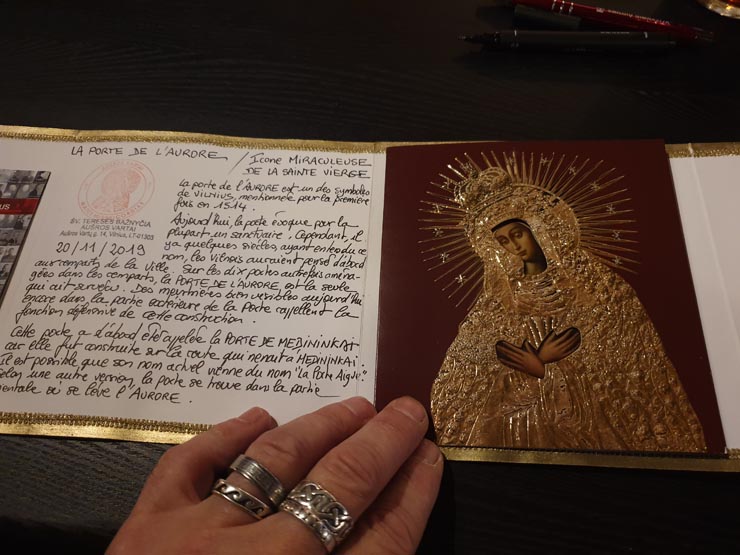 LA PORTE DE L'AURORE / Icone MIRACULEUSE
DE LA SAINTE VIERGE
ŠV. TERESĖS BAŽNYČIA
AUŠROS VARTAI
Aušros Vartų g. 14, Vilnius, LT-01303
20/11/2019
La porte de l'AURORE est un des symboles
de VILNIUS, mentionnée pour la première
fois en 1514.
Aujourd'hui, la porte évoque pour la
plupart un sanctuaire. Cependant, il
y a quelques siècles, ayant entendu ce
nom, les Vilnois auraient pensé d'abord
aux remparts de la ville. Sur les dix portes autrefois aména-
gées dans les remparts, la PORTE DE L'AURORE est la seule
qui ait survécu. Des meurtrières bien visibles aujourd'hui
encore dans la partie extérieure de la Porte rappellent la
fonction défensive de cette construction.
Cette porte a d'abord été appelée la PORTE DE MEDININKAI
car elle fut construite sur la route qui menait à MEDININKAI.
Il est possible que son nom actuel vienne du nom "La Porte Aiguë".
Selon une autre version, la porte se trouve dans la partie
ientale où se lève l'AURORE.